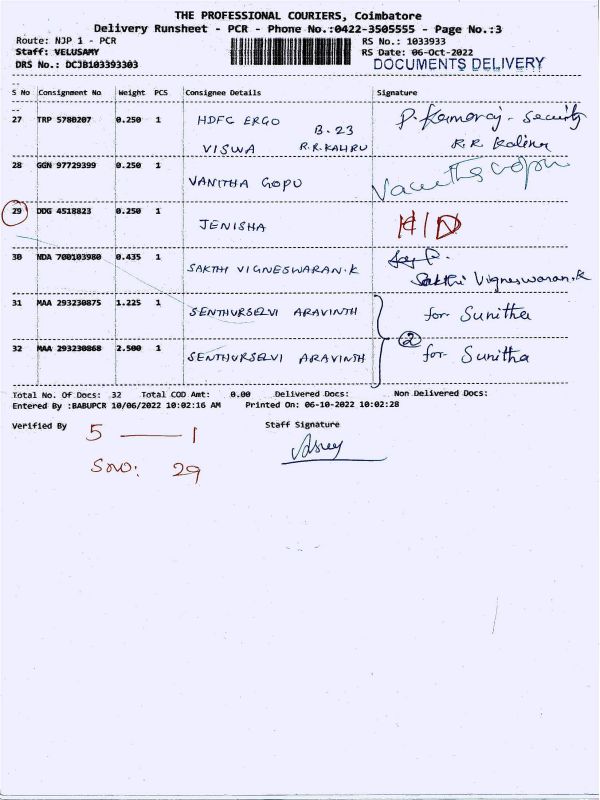 THE PROFESSIONAL COURIERS, Coimbatore
Delivery Runsheet - PCR - Phone No.:0422-3505555 - Page No.:3
Route: NJP 1 - PCR RS No.: 1033933
Staff: VELUSAMY RS Date: 06-Oct-2022
DRS No.: DCJB103393303 DOCUMENTS DELIVERY
S No Consignment No Weight PCS Consignee Details Signature
27 TRP 5780207 0.250 1 HDFC ERGO B-23 P. Kamaraj - Security
VISWA R.R.KAHRU R.R
28 GGN 97729399 0.250 1 VANITHA GOPU Vanitha Gopu
29 DDG 4518823 0.250 1 JENISHA H/D
30 NDA 700103980 0.435 1 SAKTHI VIGNESWARAN.K Sakthi Vigneswaran.K
31 MAA 293230875 1.225 1 SENTHURSELVI ARAVINTH for Sunitha
2
32 MAA 293230868 2.500 1 SENTHURSELVI ARAVINTH for Sunitha
Total No. Of Docs: 32 Total COD Amt: 0.00 Delivered Docs: Non Delivered Docs:
Entered By :BABUPCR 10/06/2022 10:02:16 AM Printed On: 06-10-2022 10:02:28
Verified By Staff Signature
5 — 1
Sno: 29